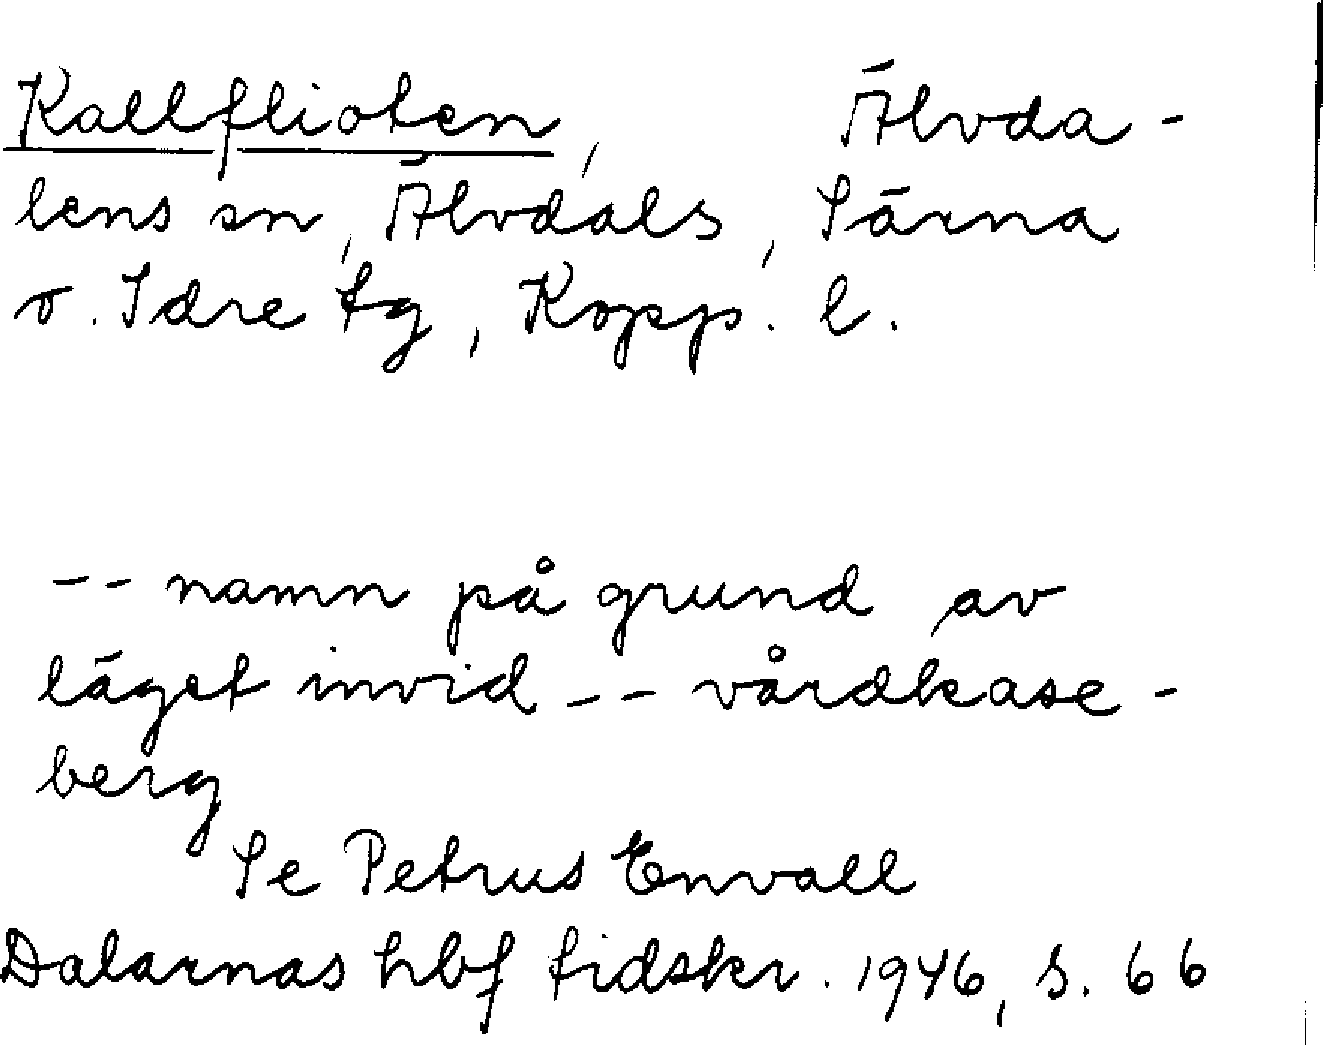 Kallflioten, Älvda-
lens sn, Älvdals, Särna
o. Idre tg, Kopp. l.
-- namn på grund av
läget invid -- vårdkase-
berg
Se Petrus Envall
Dalarnas hbf tidskr. 1946, s. 66